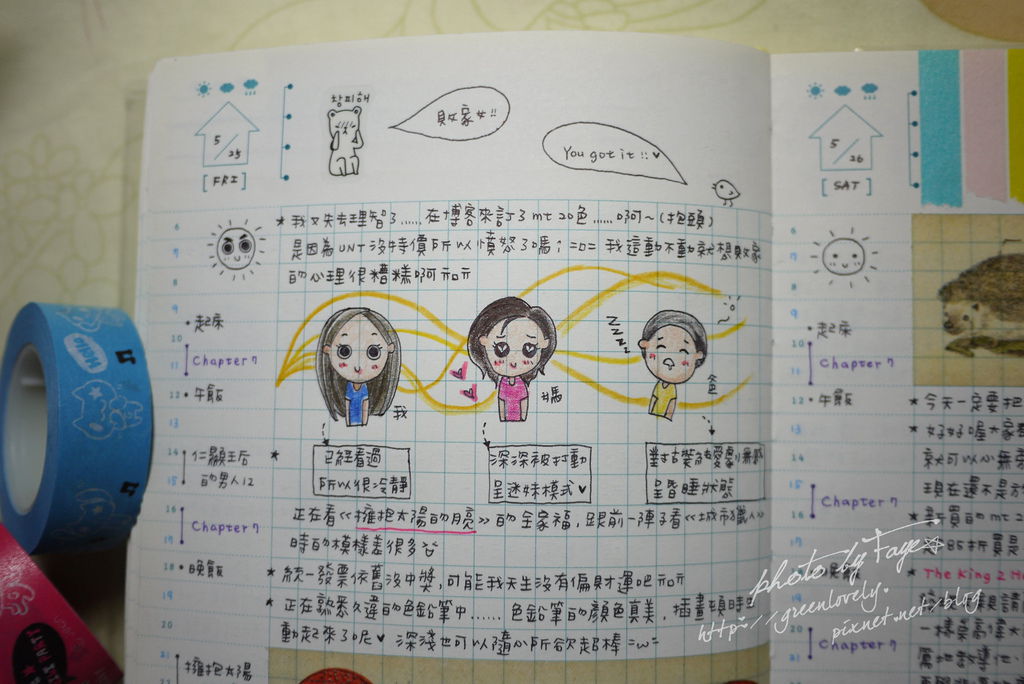 창피해
敗家女!!
You got it!!♥
5/25
[FRI]
★我又失去理智了......在博客來訂了mt 20色......啊~(抱頭)
是因為UNT沒特價所以憤怒了嗎; =D= 我這動不動就想敗家
的心理很糟糕啊
6
7
8
9
10
11
12
13
14
15
16
17
18
19
20
21
•起床
Chapter 7
•午飯
仁顯王后
的男人12
Chapter 7
•晚飯
擁抱太陽
zzzzz
我
媽
爸
已經看過
所以很冷靜
深深被打動
呈迷妹模式♥
對古裝愛劇無感
呈昏睡狀態
★正在看《擁抱太陽的月亮》的全家福,跟前一陣子看《城市獵人》
時的模樣差很多
★統一發票依舊沒中獎,可能我天生沒有偏財運吧
★正在熟悉久違的色鉛筆中......色鉛筆的顏色真美,插畫頓時生
動起來了呢♥ 深淺也可以隨心所欲超棒 =w=
5/26
[SAT]
6
7
8
9
10
11
12
13
14
15
16
17
18
19
20
21
•起床
Chapter 7
•午飯
Chapter 7
Chapter 7
★今天一定要把
★好好喔大家都
就可以心無
現在還不是
★新買的mt 2
85折買是
★The King 2 H
一樣
Hello
photo by Faye☆
http://greenlovely.
pixnet.net/blog